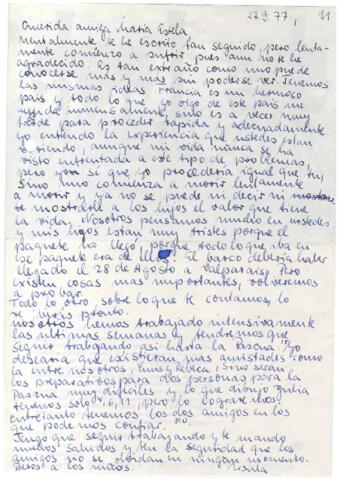 27.9.77, 11
Querida amiga María Estela,
mentalmente te he escrito tan seguido, pero lenta-
mente comienzo a sufrir pues aun no te he
agradecido. Es tan extraño como uno puede
conocerse más y más sin poderse ver. Tenemos
las mismas ideas. Francia es un hermoso
país y todo lo que yo oigo de este país me
ayuda inmensamente, sino es a veces muy
tarde para proceder rápida y adecuadamente
Yo entiendo la experiencia que ustedes
viviendo, aunque mi vida nunca se ha
visto enfrentada a este tipo de problemas,
pero yo sé que yo procedería igual que tú,
Sino uno comienza a morir lentamente
a morir y ya no se puede ni decir ni
mostrarle a los hijos el valor que tiene
la vida. Nosotros pensamos mucho en ustedes
y mis hijos están muy tristes porque el
paquete no llegó, porque todo lo que iba en
ese paquete era de ellos. El barco debería haber
llegado el 28 de Agosto a Valparaiso, Pero
existen cosas más importantes, volveremos
a probar.
Todo lo otro sobre lo que te contamos, lo
pronto.
nosotros hemos trabajado intensivamente
las últimas semanas y tendremos que
seguir trabajando así hasta la Pascua. Yo
desearía que existieran más amistades como
la entre nosotros, Sino serán
los preparativos para dos personas para la
Pascua muy difíciles y lo que dibujó Julia
tenemos sólo, pero lo lograremos
entretanto tenemos los dos amigos en los
que podemos confiar.
Tengo que seguir trabajando y te mando
muchos saludos y ten la seguridad que los
amigos no se olvidan en ningún momento.
Besos a los niños. Ursula